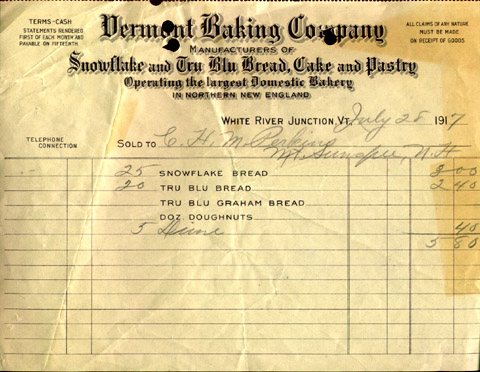 TERMS-CASH
STATEMENTS RENDERED
FIRST OF EACH MONTH AND
PAYABLE ON FIFTEENTH
Vermont Baking Company
ALL CLAIMS OF ANY NATURE
MUST BE MADE
ON RECEIPT OF GOODS
MANUFACTURERS OF
Snowflake and Tru Blu Bread, Cake and Pastry
Operating the largest Domestic Bakery
IN NORTHERN NEW ENGLAND
WHITE RIVER JUNCTION VT. July 28 1917
TELEPHONE
CONNECTION
SOLD TO C. H. M. Perkins
Mt. Sunapee, N.H.
25 SNOWFLAKE BREAD 3 00
20 TRU BLU BREAD 2 40
TRU BLU GRAHAM BREAD
DOZ DOUGHNUTS
5 40
5 80